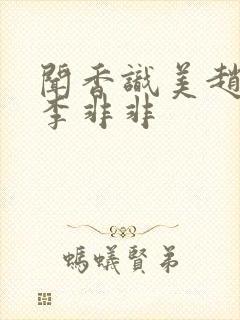 聞香識美趙
李非非
螞蟻賢弟